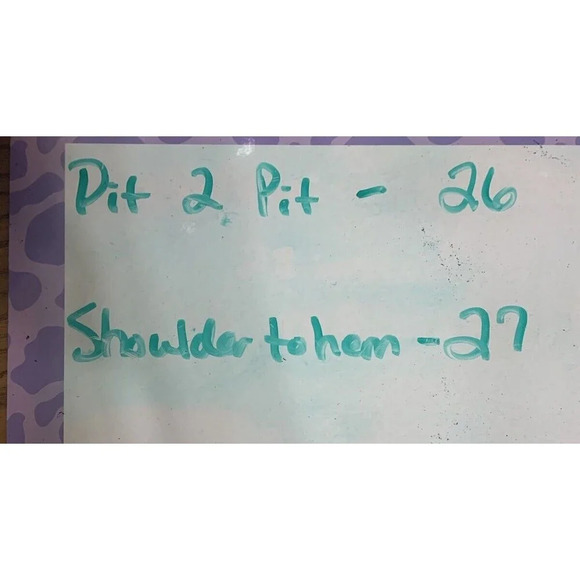 Pit 2 Pit - 26
Shoulder to hem - 27